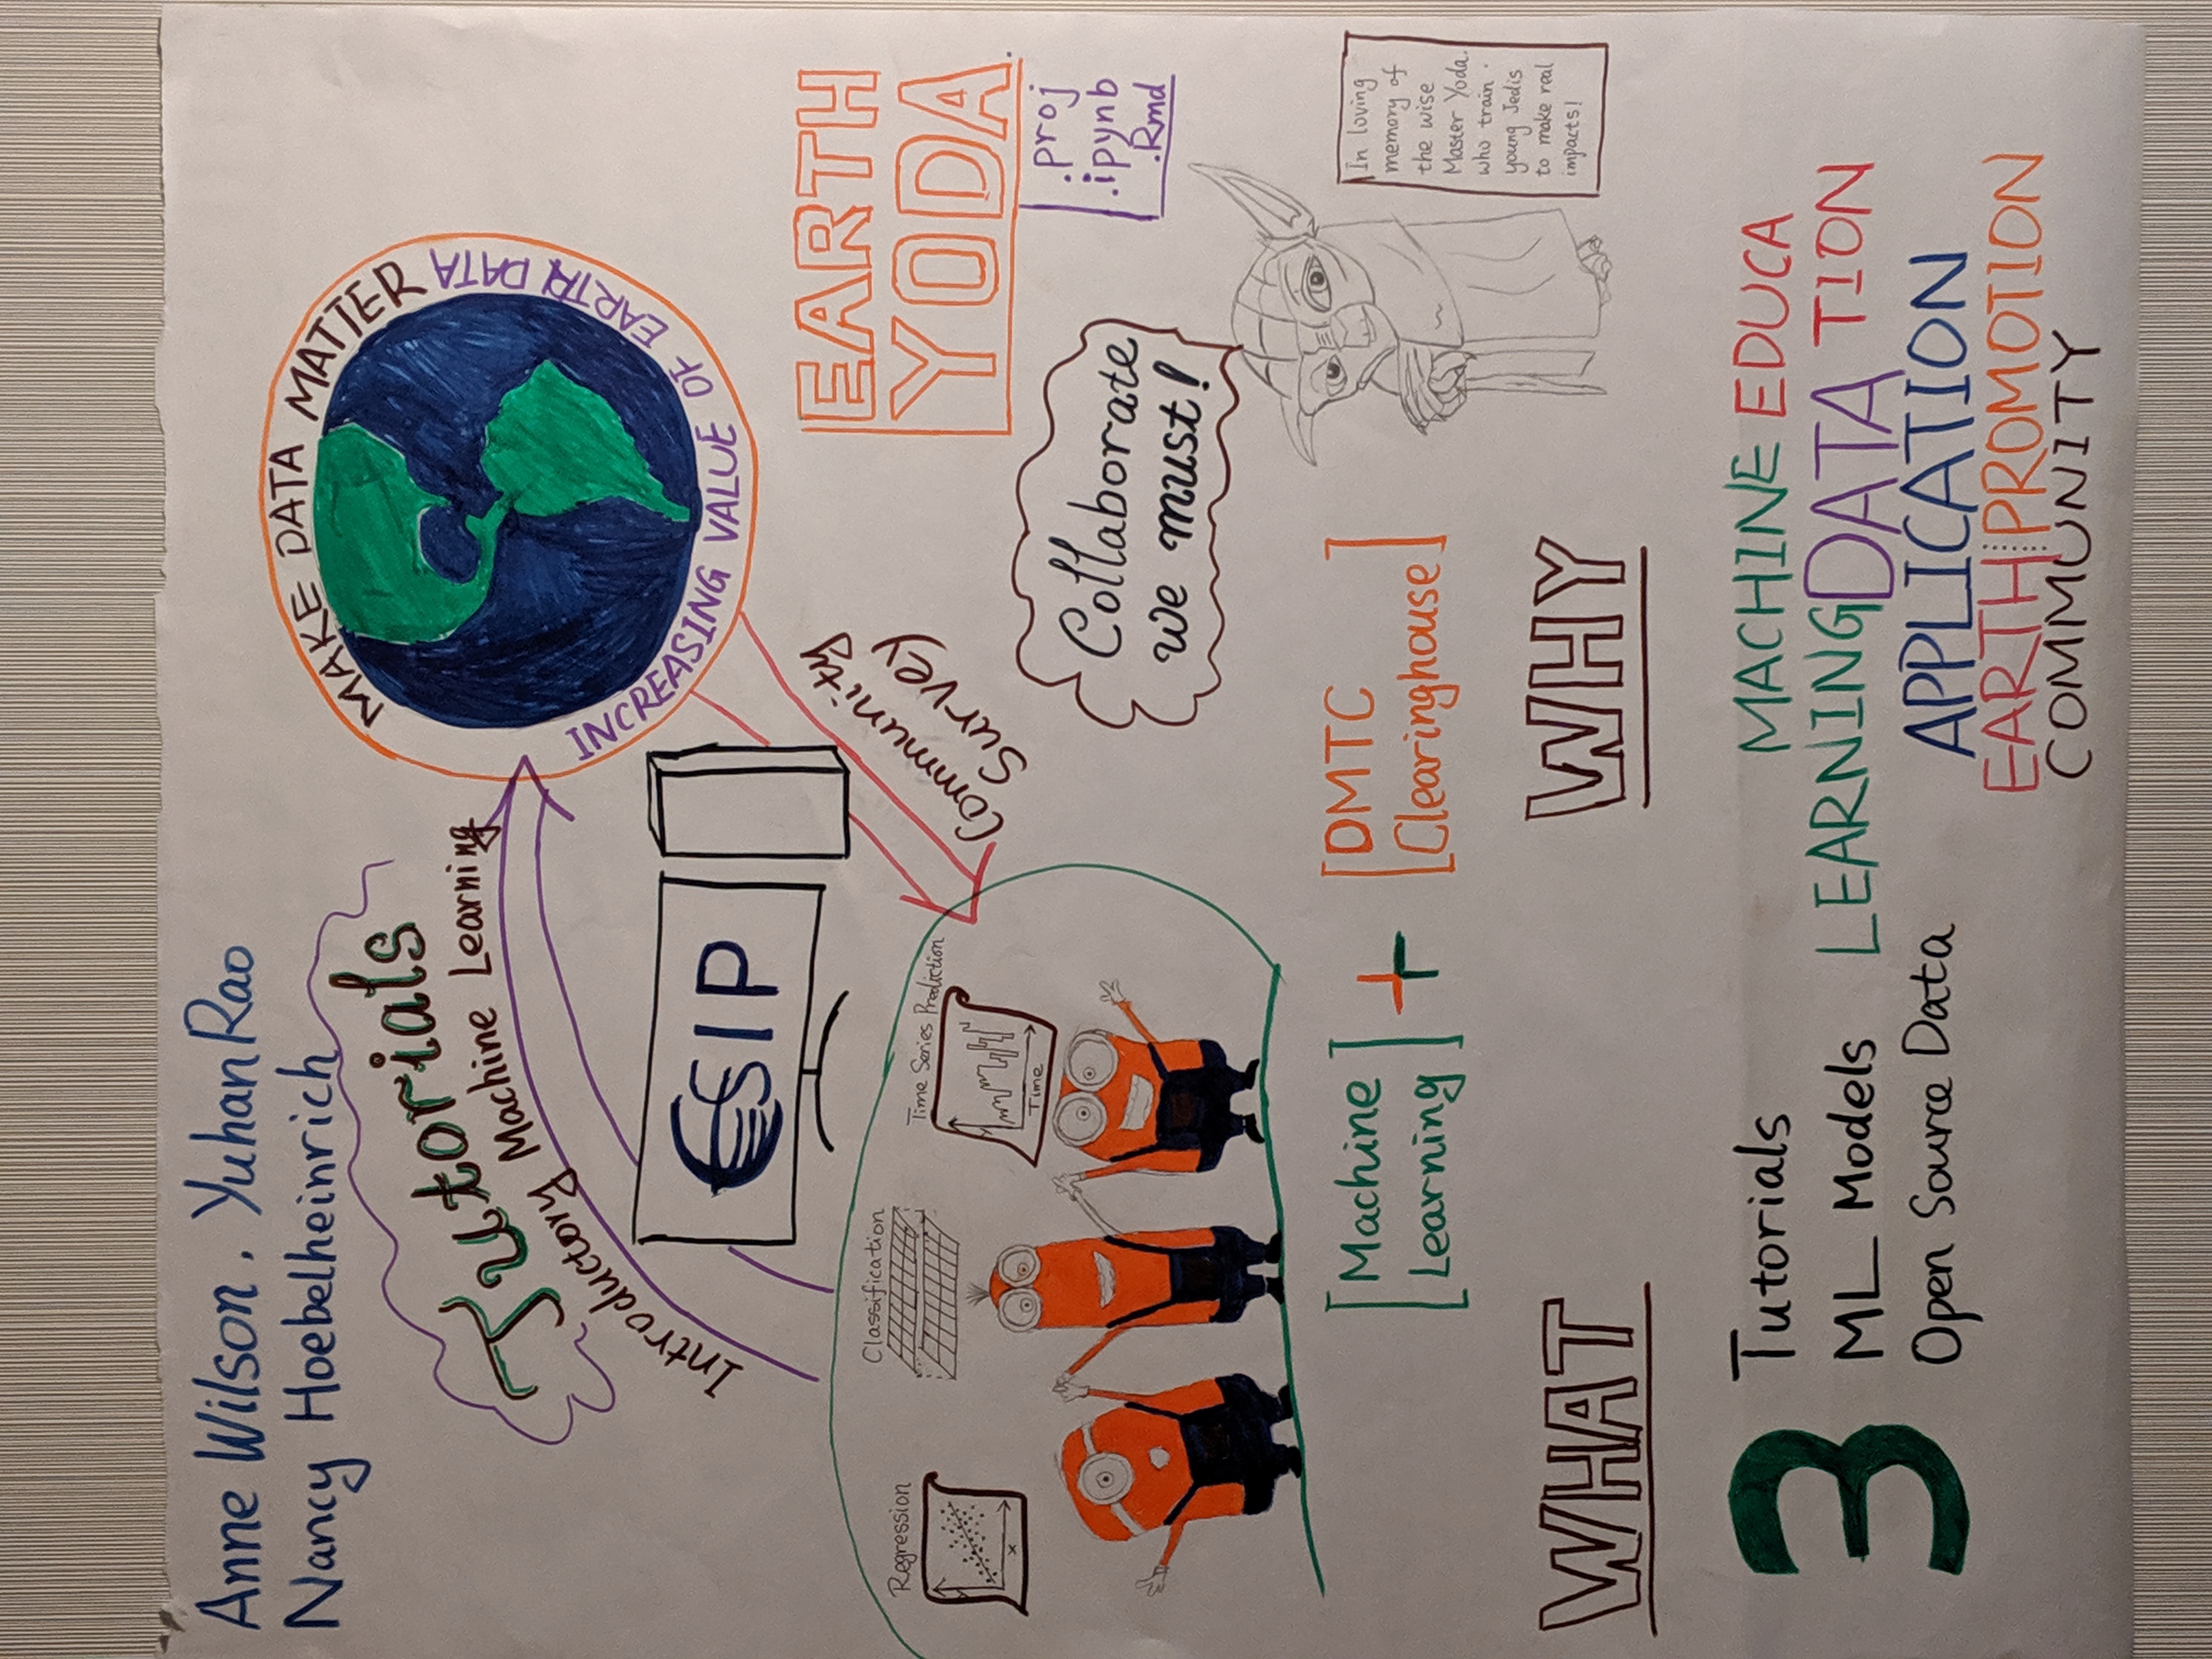 Anne Wilson. Yuhan Rao
Nancy Hoebelheinrich
Tutorials
Introductory Machine Learning
MAKE DATA MATTER
INCREASING VALUE OF EARTH DATA
ESIP
Community
Survey
Regression
x
Classification
Time Series Prediction
Time
EARTH
YODA
.proj
.ipynb
.Rmd
Collaborate
we must!
Machine
Learning
+
DMTC
Clearinghouse
In loving
memory of
the wise
Master Yoda.
who train
young Jedis
to make real
impacts!
WHAT
WHY
3
Tutorials
ML Models
Open Source Data
MACHINE EDUCA
LEARNING DATA TION
APPLICATION
EARTH PROMOTION
COMMUNITY